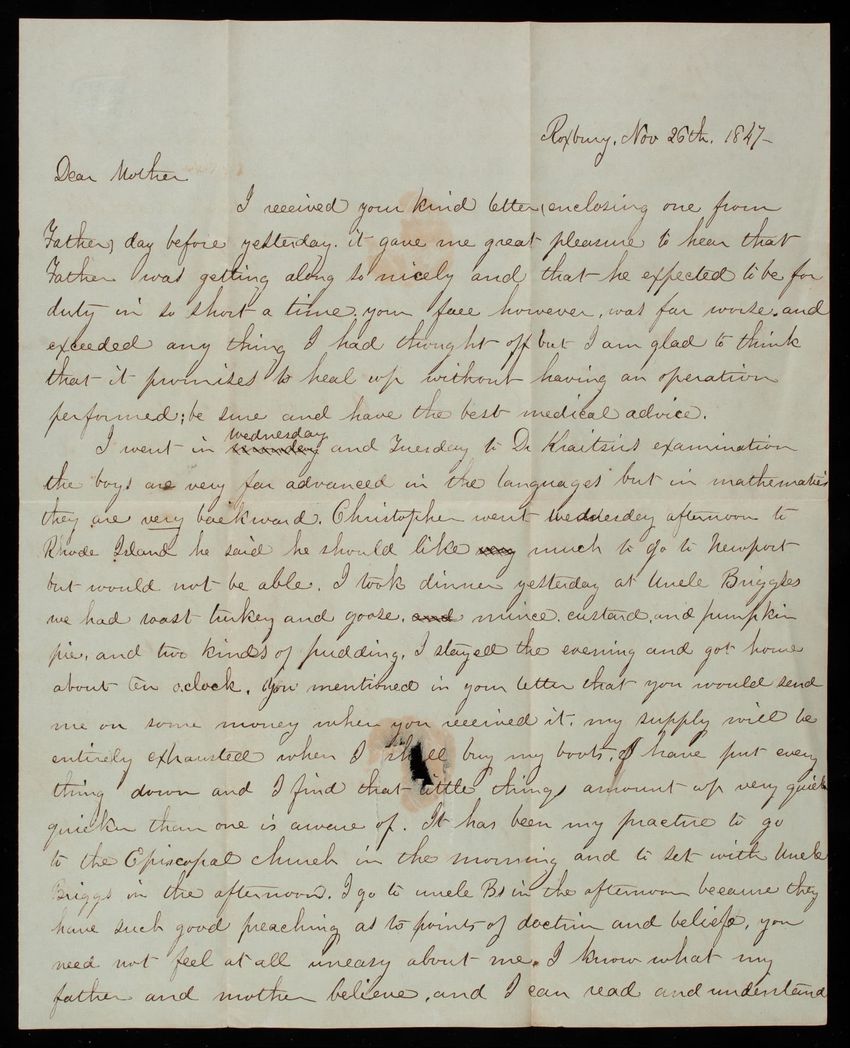 Roxbury, Nov 26th. 1847-
Dear Mother
I received your kind letter, (enclosing one from
Father) day before yesterday. it gave me great pleasure to hear that
Father was getting along so nicely and that he expected to be for
duty in so short a time. your face however, was far worse. and
exceeded any thing I had thought off but I am glad to think
that it promises to heal up without having an operation
performed; be sure and have the best medical advice.
I went in wednesday and Tuesday to Dr Kraitsirs examination
the boys are very far advanced in the languages but in mathematics
they are very backward. Christopher went wednesday afternoon to
Rhode Island he said he should like very much to go to Newport
but would not be able. I took dinner yesterday at Uncle Briggles
we had roast turkey and goose. and mince. custard. and pumpkin
pie. and two kinds of pudding. I stayed the evening and got home
about ten oclock. You mentioned in your letter that you would send
me on some money when you received it. my supply will be
entirely exhausted when I shall buy my boots. I have put every
thing down and I find that little things amount up very quick
quicker than one is aware of. It has been my practice to go
to the Episcopal church in the morning and to set with Uncle
Briggs in the afternoon. I go to uncle Bs in the afternoon because they
have such good preaching as to points of doctrin and beliefe, you
need not feel at all uneasy about me. I know what my
father and mother believe, and I can read and understand